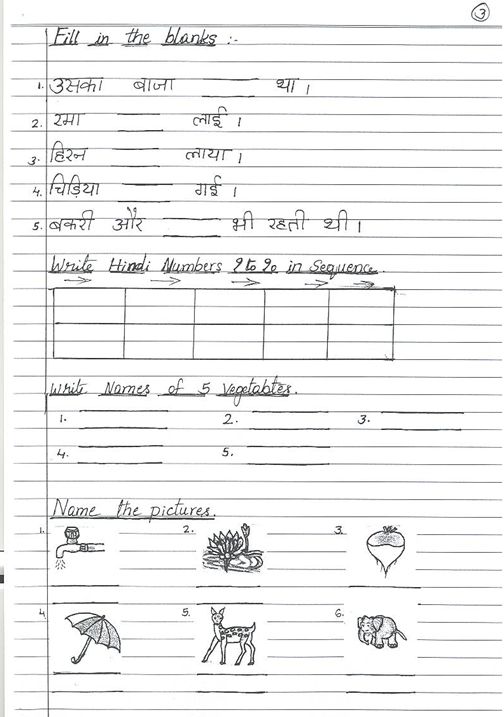 3
Fill in the blanks :-
1. उसका बाजा ____ था ।
2. रमा ____ लाई ।
3. हिरन ____ लाया ।
4. चिड़िया ____ गई ।
5. बकरी और ____ भी रहती थी ।
Write Hindi Numbers १ to १० in Sequence.
Write Names of 5 Vegetables.
1. ____ 2. ____ 3. ____
4. ____ 5. ____
Name the pictures.
1. 2. 3.
4. 5. 6.